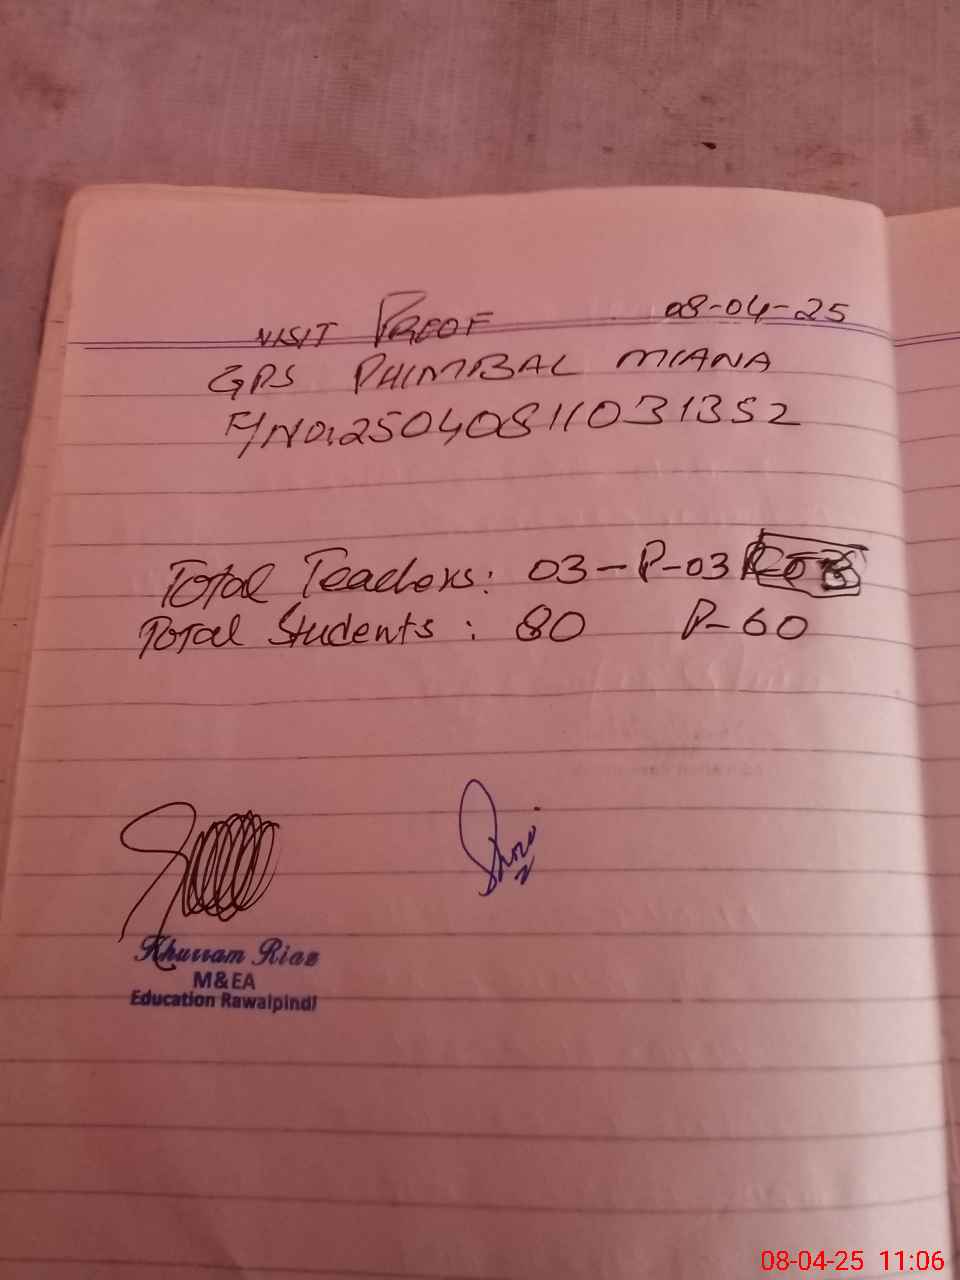 VISIT PROOF 08-04-25
GPS PHIMBAL MIANA
F/NO.25040811031352
Total Teachers: 03-P-03
Total Students: 80 P-60
Khurram Riaz
M&EA
Education Rawalpindi
08-04-25 11:06